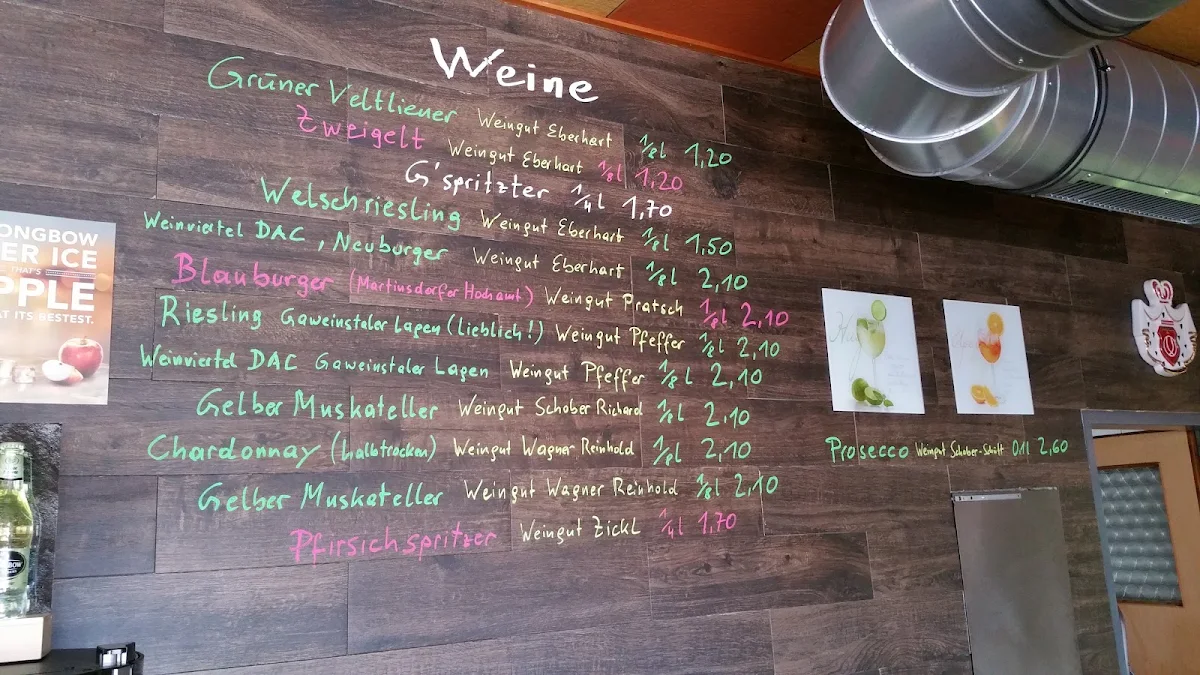 Weine
Grüner Veltliener Weingut Eberhart 1/8 l 1,20
Zweigelt Weingut Eberhart 1/8 l 1,20
G'spritzter 1/4 l 1,70
Welschriesling Weingut Eberhart 1/8 l 1,50
Weinviertel DAC, Neuburger Weingut Eberhart 1/8 l 2,10
Blauburger (Martinsdorfer Hochamt) Weingut Pratsch 1/8 l 2,10
Riesling Gaweinstaler Lagen (Lieblich!) Weingut Pfeffer 1/8 l 2,10
Weinviertel DAC Gaweinstaler Lagen Weingut Pfeffer 1/8 l 2,10
Gelber Muskateller Weingut Schober Richard 1/8 l 2,10
Chardonnay (halbtrocken) Weingut Wagner Reinhold 1/8 l 2,10
Gelber Muskateller Weingut Wagner Reinhold 1/8 l 2,10
Pfirsichspritzer Weingut Zickl 1/4 l 1,70
Prosecco Weingut Schober-Schütt 0,1l 2,60
ONGBOW
ER ICE
THAT'S
PPLE
AT ITS BESTEST.